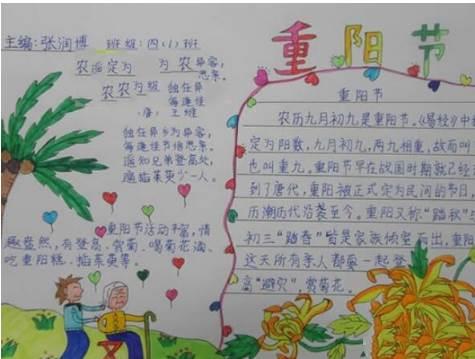 主编:张润博 班级:四(1)班
重阳节
农历定为 为农异客,
思亲。
农农为级 独在异
每逢佳
唐: 王维
独在异乡为异客,
每逢佳节倍思亲。
遥知兄弟登高处,
遍插茱萸少一人。
重阳节活动丰富,情
趣盎然,有登高、赏菊、喝菊花酒、
吃重阳糕、插茱萸等。
重阳节
农历九月初九是重阳节。《易经》中
定为阳数,九月初九,两九相重,故而叫
也叫重九。重阳节早在战国时期就已经
到了唐代,重阳被正式定为民间的节日
历朝历代沿袭至今。重阳又称"踏秋"
初三"踏春"皆是家族倾室而出,重阳
这天所有亲人都要一起登
高"避灾" 赏菊花。